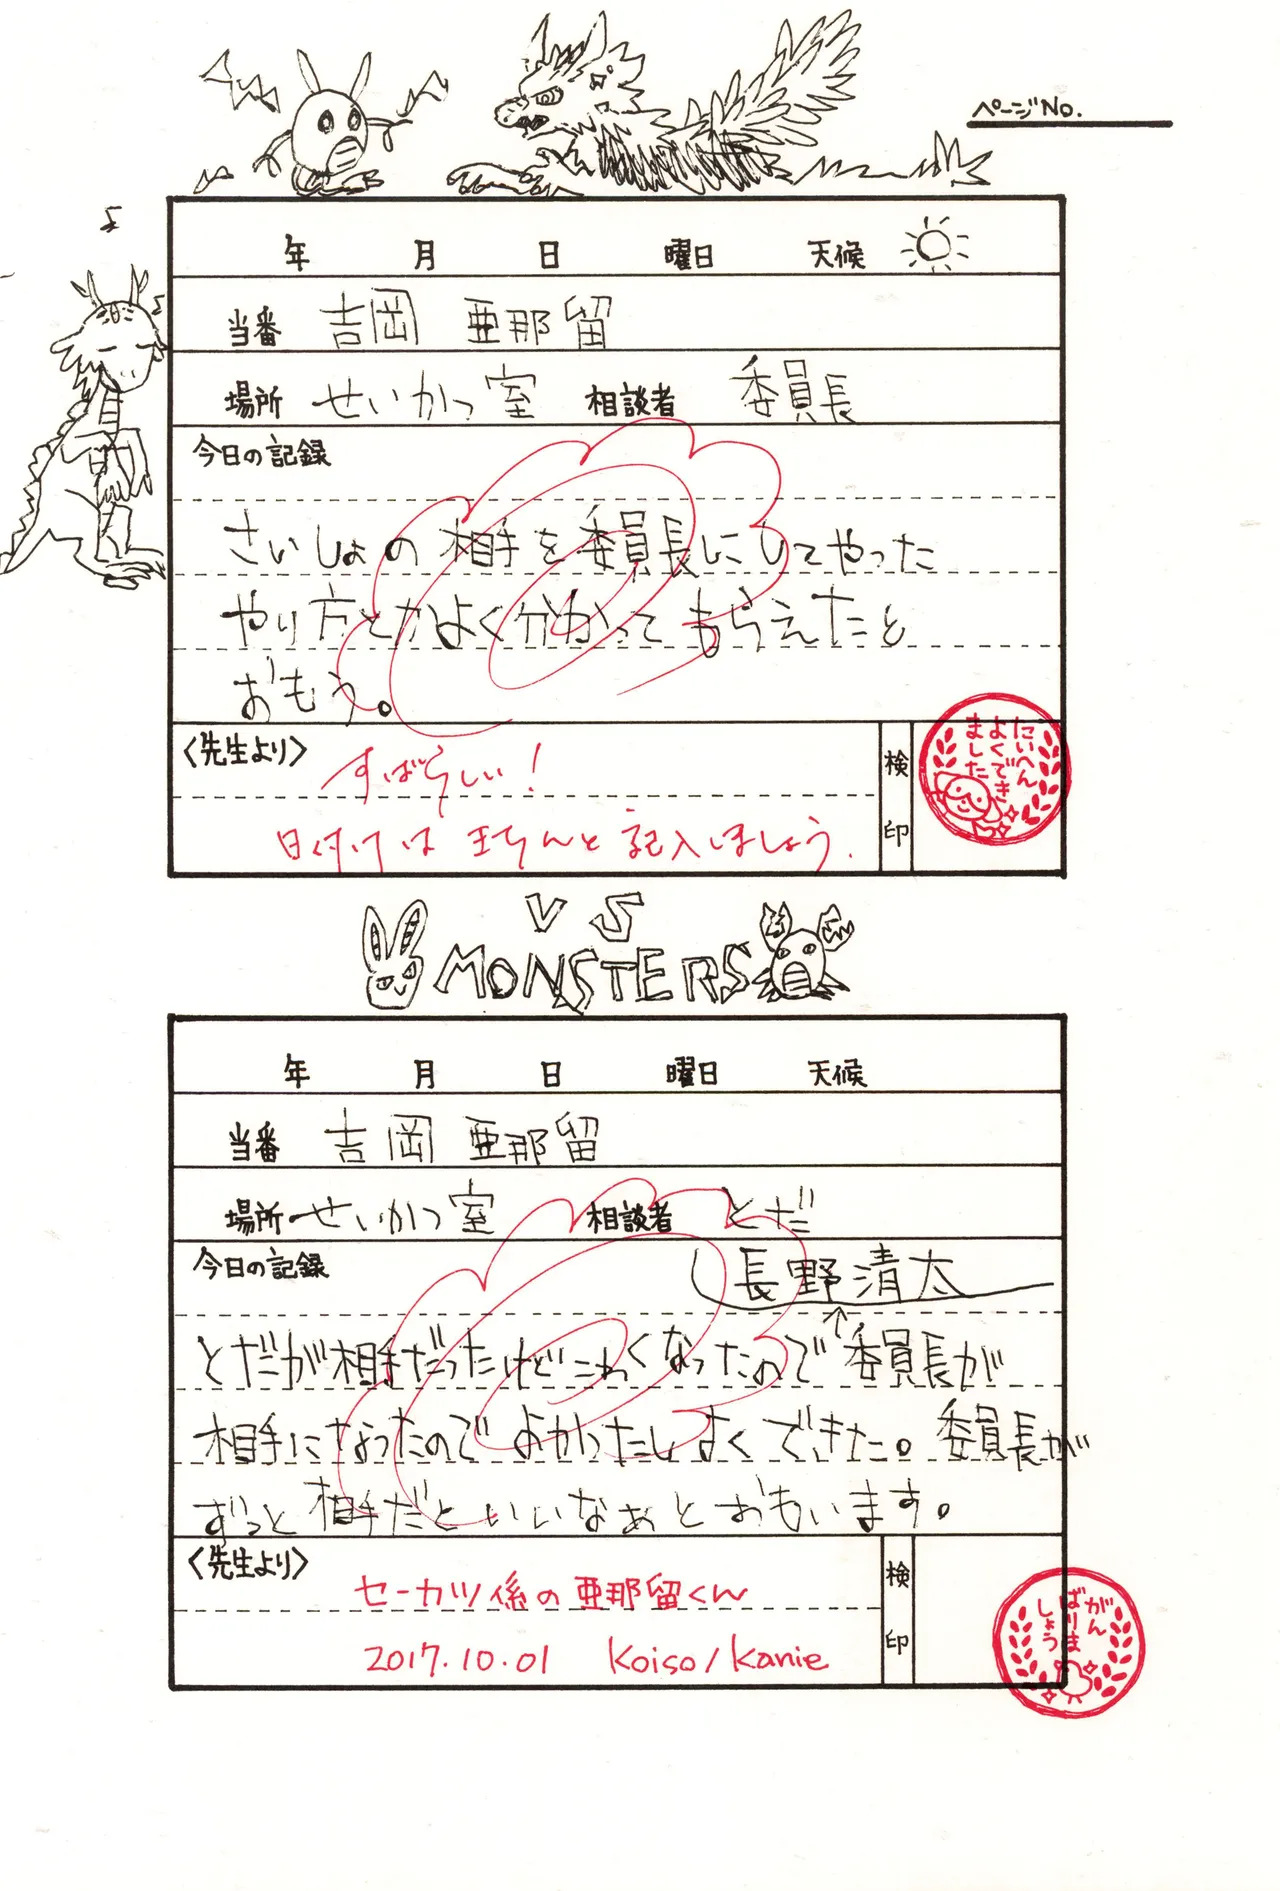 ページNo.
年 月 日 曜日 天候
当番 吉岡 亜那留
場所 せいかつ室 相談者 委員長
今日の記録
さいしょの相手を委員長にしてやった
やり方とかよく分かってもらえたと
おもう。
〈先生より〉
すばらしい！
日付けはきちんと記入しましょう.
検印
たいへん
よくでき
ました
VS
MONSTERS
年 月 日 曜日 天候
当番 吉岡 亜那留
場所 せいかつ室 相談者 とだ
今日の記録
長野清太
↑
とだが相手だったけどこわくなったので委員長が
相手になったのでよかったしよくできた。委員長が
ずっと相手だといいなぁとおもいます。
〈先生より〉
セーカツ係の亜那留くん
2017.10.01 Koiso/Kanie
検印
がん
ばりま
しょう